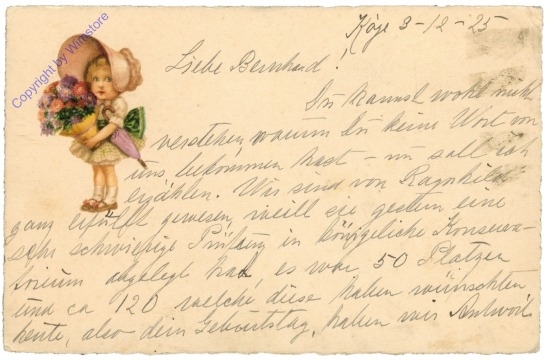 Copyright by Winstore
Køge 3-12-25
Liebe Bernhard!
Du kannst wohl nicht
verstehen, warum Du keine Wort von
uns bekommen hast – nu soll ich
erzählen. Wir sind von Ragnhild
ganz erfüllt gewesen, weill sie gestern eine
sehr schwierige Prüfung in königliche Konserva-
torium abgelegt hat, es war 50 Platzen
und ca 120 welche diese haben wünschten
heute, also dein Geburtstag, haben wir Antwort